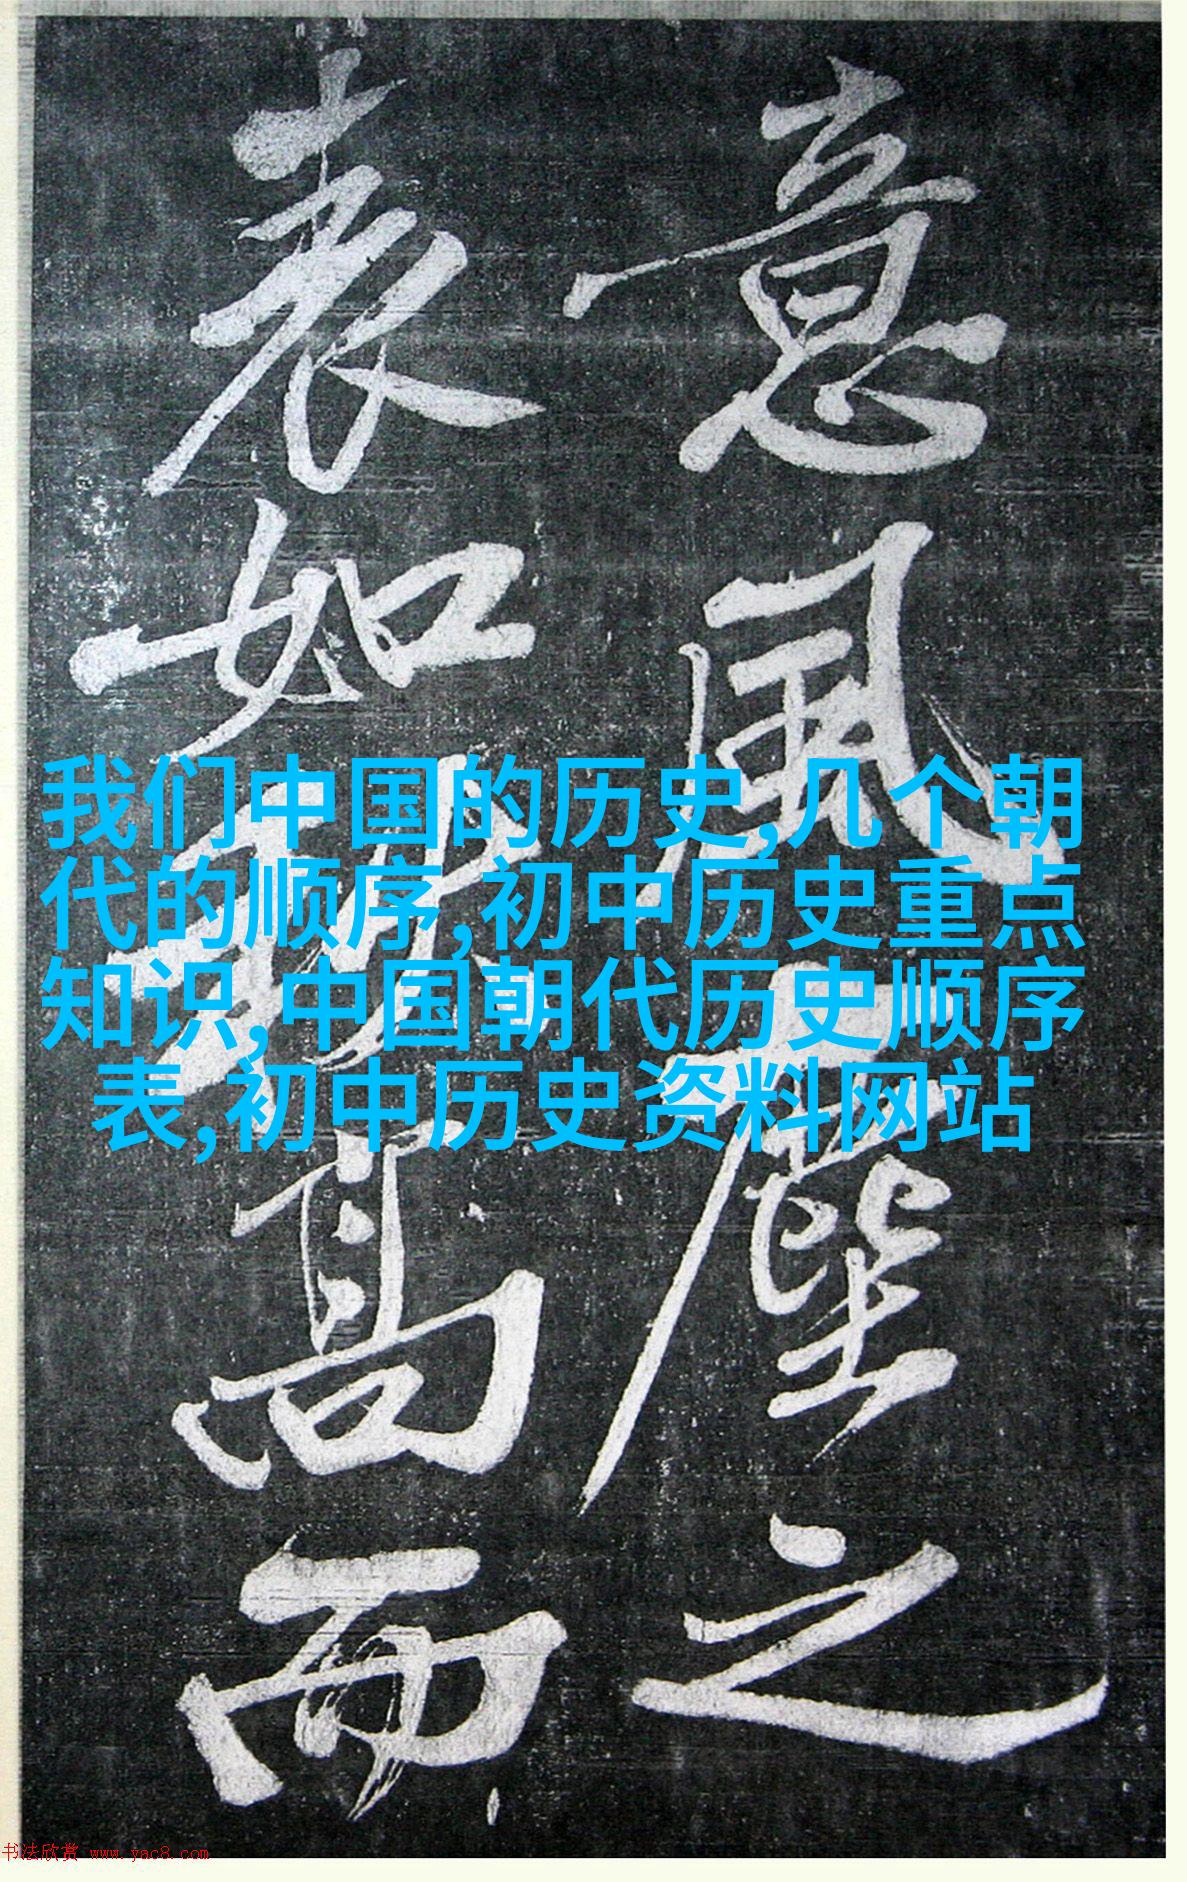 意風塵之
表如高而
我们中国的历史,几个朝
代的顺序,初中历史重点
知识,中国朝代历史顺序
表,初中历史资料网站
书法欣赏 www.yac8.com